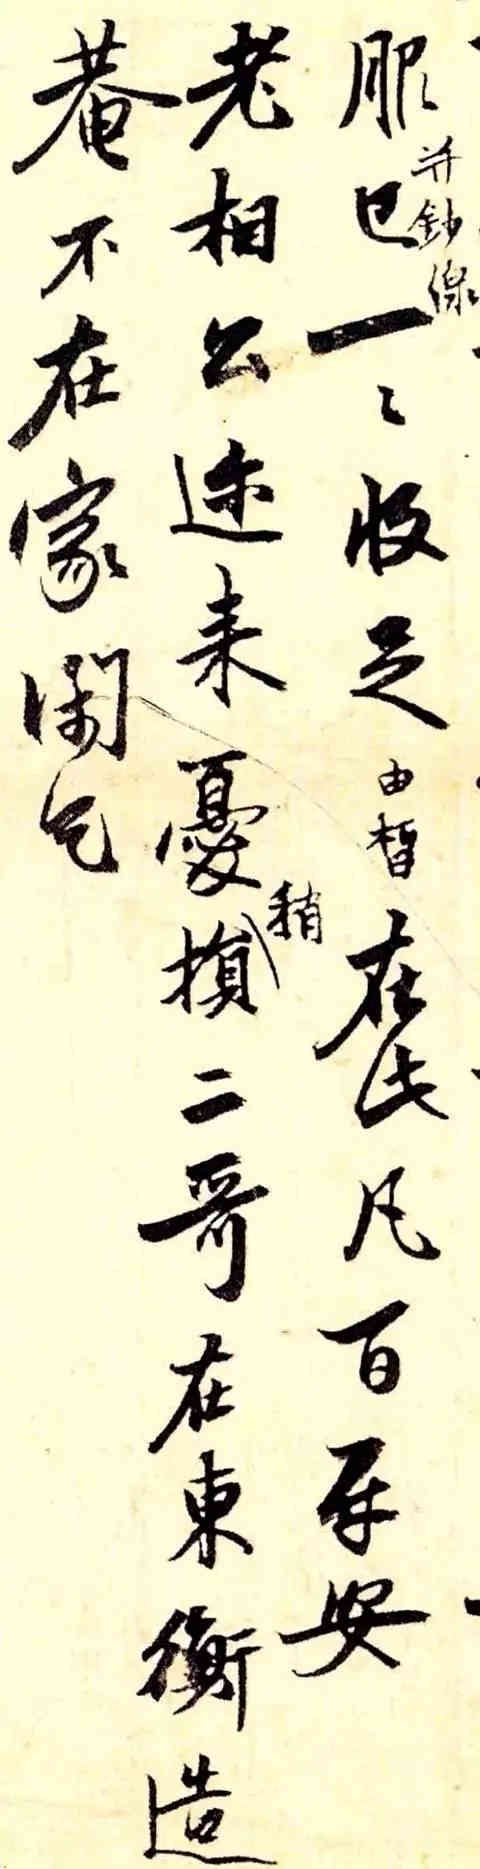 服并鈔線已一〻收足由皙在此凡百平安
老相公迩来憂稍損二哥在東衡造
菴不在家乞